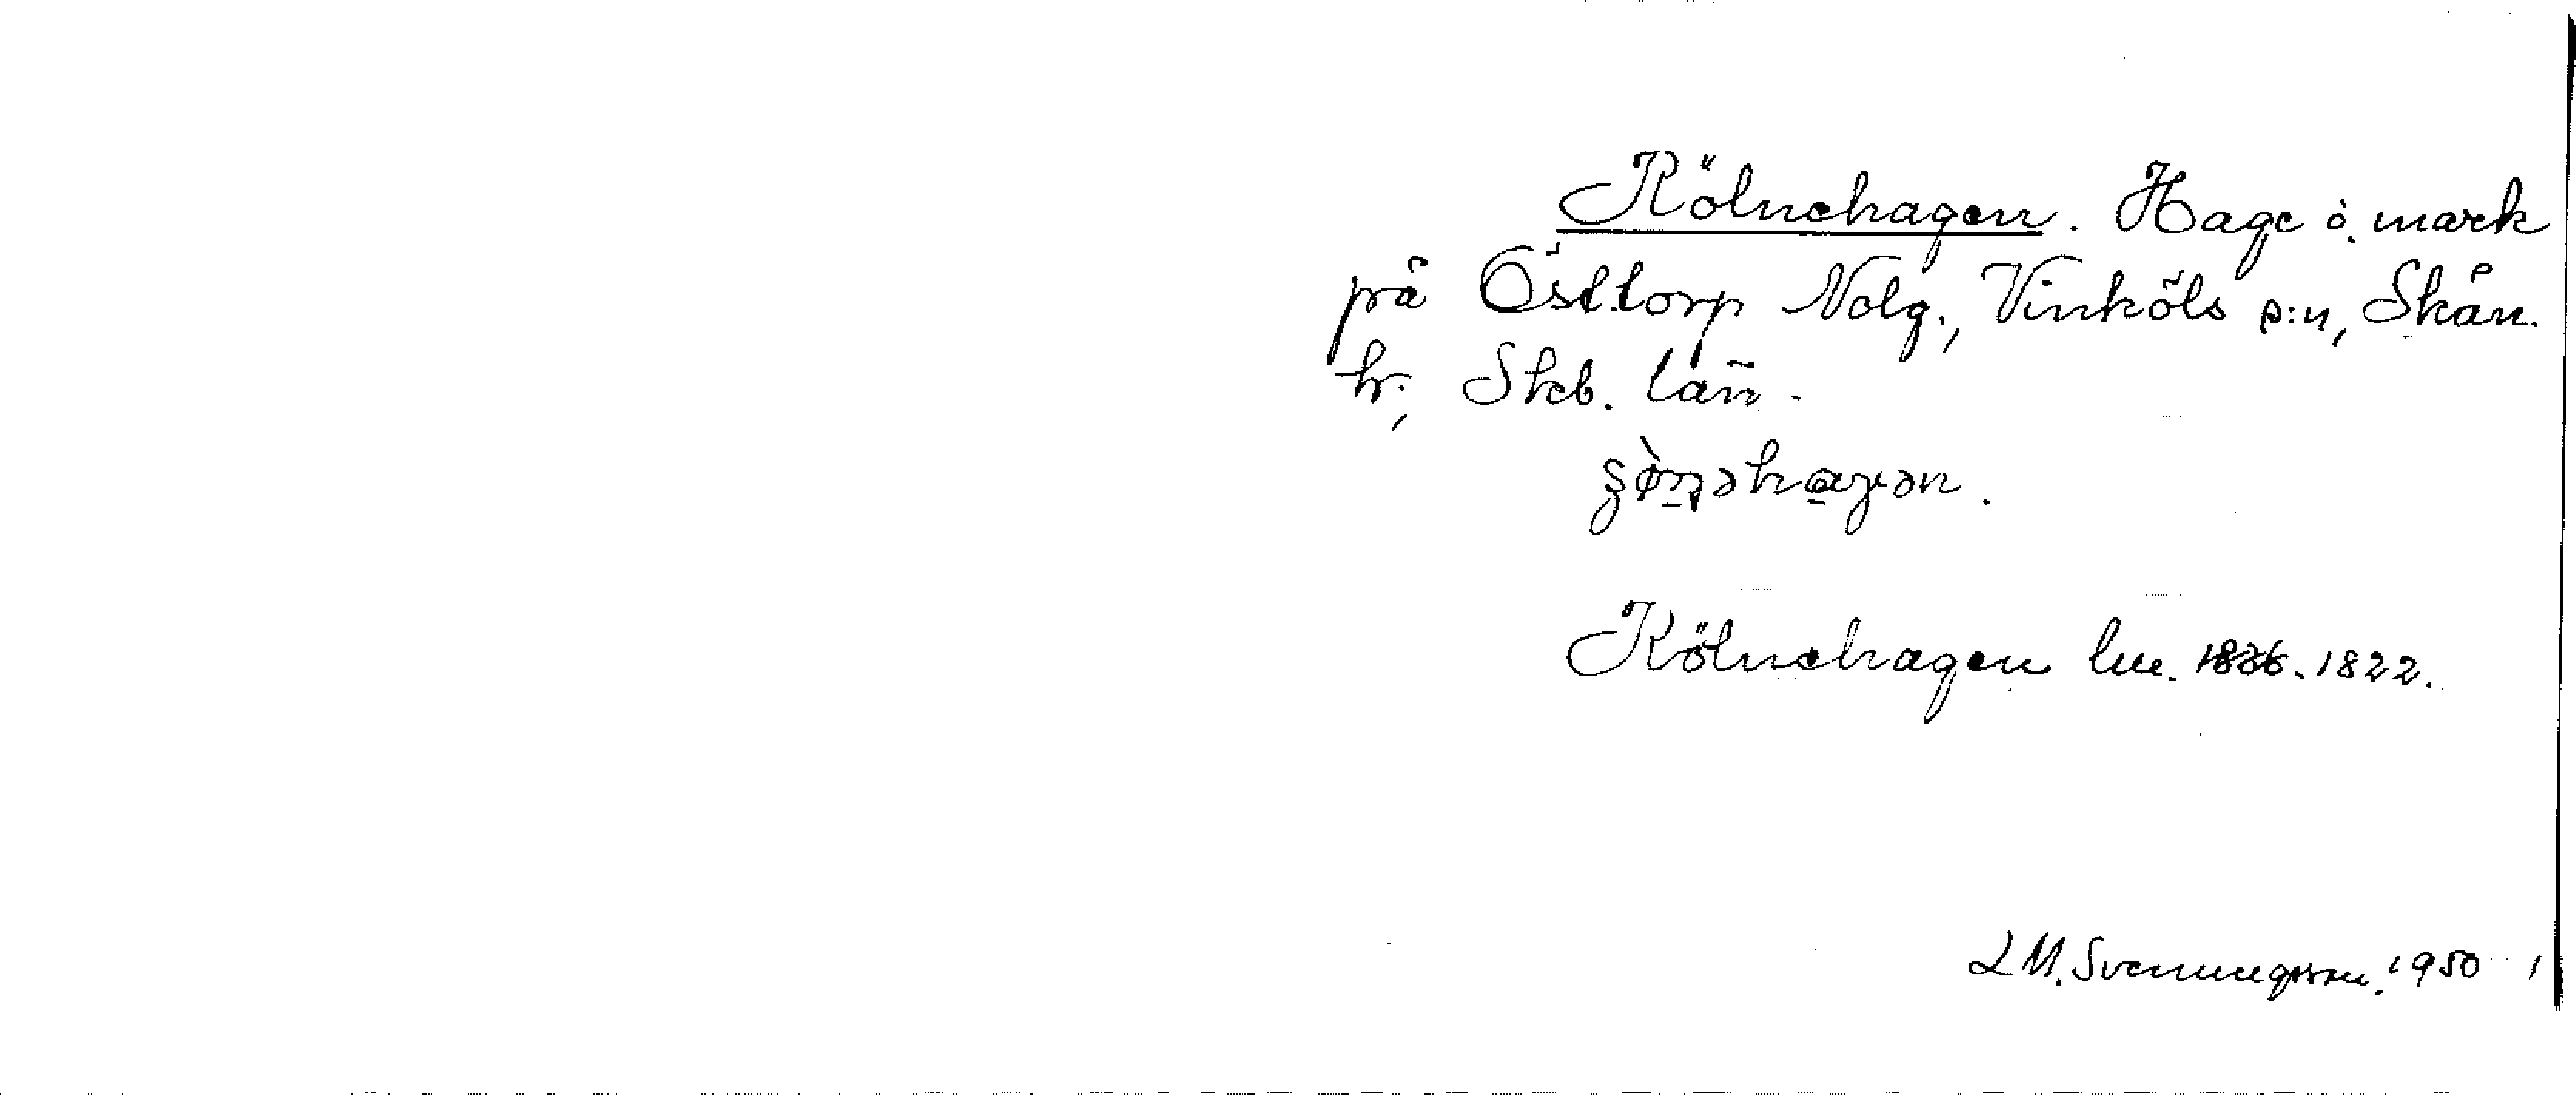 Kölnehagen. Hage ö. mark
på Östtorp Nolg., Vinköls s:n, Skån.
hr, Skb. län.
Kölnehagen lm. 1822.
1950